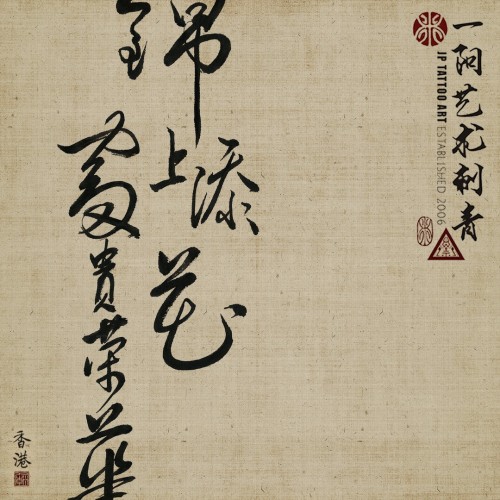 一阿艺术刺青
JP TATTOO ART ESTABLISHED 2006
錦上添花
富貴荣華
香港